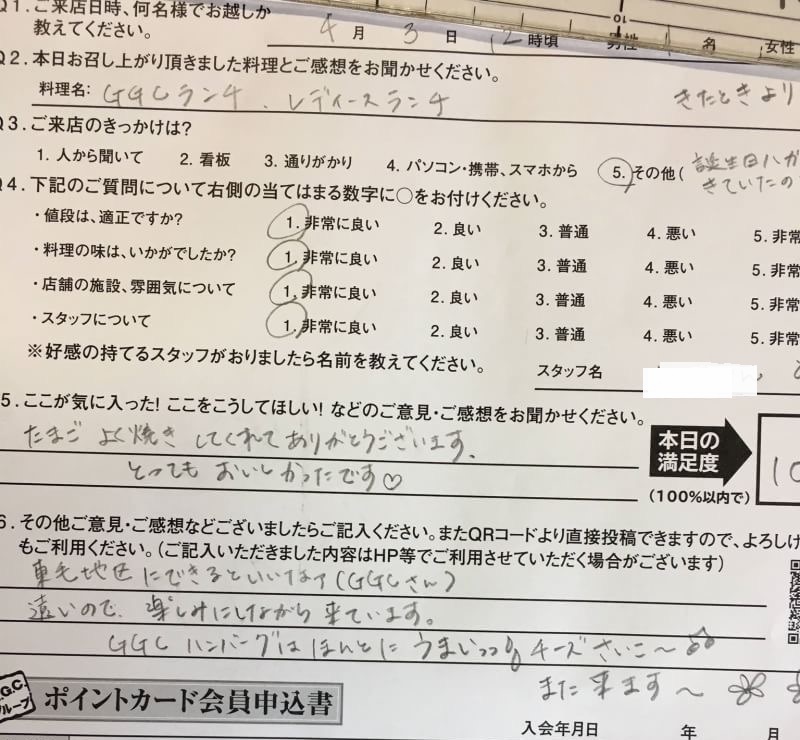 Q1. ご来店日時、何名様でお越しか
教えてください。 4月 3日 12時頃 男性 名 女性
Q2. 本日お召し上がり頂きました料理とご感想をお聞かせください。
料理名: GGCランチ、レディースランチ きたときより
Q3. ご来店のきっかけは?
1. 人から聞いて 2. 看板 3. 通りがかり 4. パソコン・携帯、スマホから 5. その他( 誕生日ハガ
きていたの
Q4. 下記のご質問について右側の当てはまる数字に○をお付けください。
・値段は、適正ですか? 1. 非常に良い 2. 良い 3. 普通 4. 悪い 5. 非常
・料理の味は、いかがでしたか? 1. 非常に良い 2. 良い 3. 普通 4. 悪い 5. 非常
・店舗の施設、雰囲気について 1. 非常に良い 2. 良い 3. 普通 4. 悪い 5. 非常
・スタッフについて 1. 非常に良い 2. 良い 3. 普通 4. 悪い 5. 非常
※好感の持てるスタッフがおりましたら名前を教えてください。 スタッフ名
5. ここが気に入った! ここをこうしてほしい! などのご意見・ご感想をお聞かせください。
たまご よく焼き してくれてありがとうございます。
とっても おいしかったです♡
本日の
満足度
(100%以内で)
10
6. その他ご意見・ご感想などございましたらご記入ください。またQRコードより直接投稿できますので、よろしけ
もご利用ください。(ご記入いただきました内容はHP等でご利用させていただく場合がございます)
東毛地区にできるといいなァ(GGCさん)
遠いので、楽しみにしながら来ています。
GGC ハンバーグは ほんとに うまいっっ チーズさいこ〜
また来ます〜
.G.C.
グループ
ポイントカード会員申込書
入会年月日 年 月